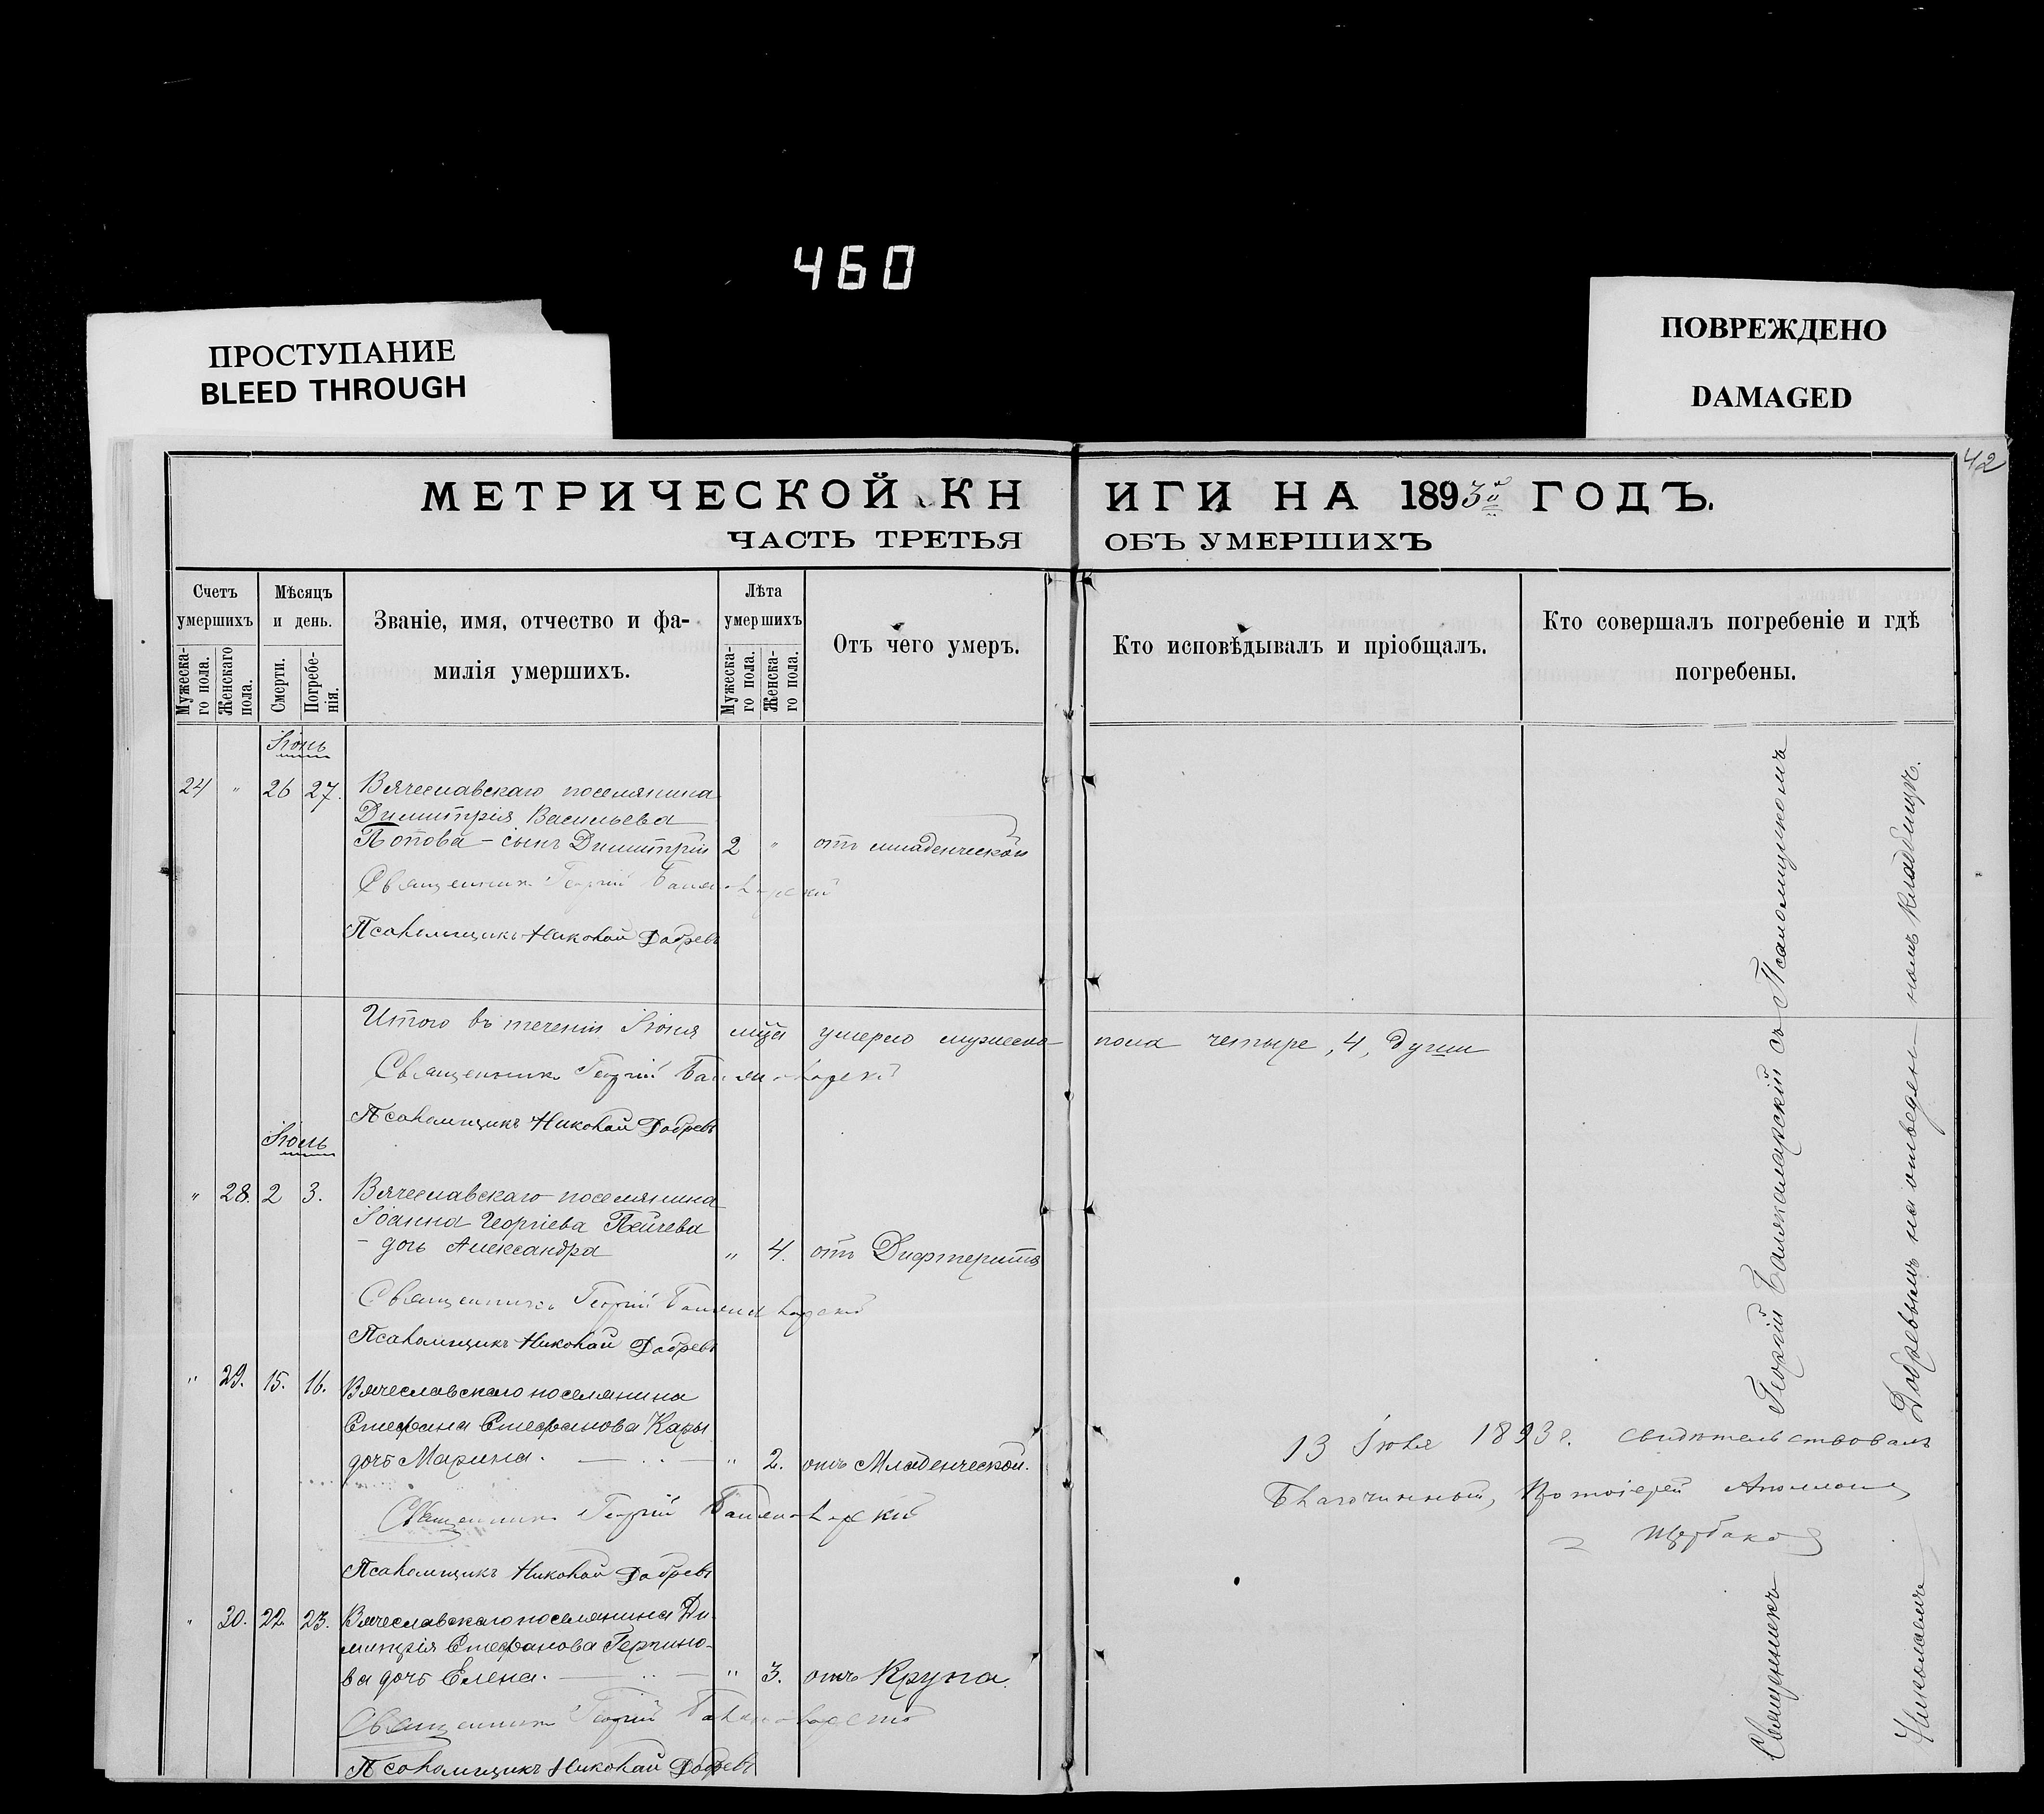 460
ПРОСТУПАНИЕ
BLEED THROUGH
ПОВРЕЖДЕНО
DAMAGED
42
МЕТРИЧЕСКОЙ КНИГИ НА 1893й ГОДЪ.
ЧАСТЬ ТРЕТЬЯ ОБЪ УМЕРШИХЪ
Счетъ умершихъ
Мужескаго пола.
Женскаго пола.
Мѣсяцъ и день.
Смерти.
Погребенія.
Званіе, имя, отчество и фамилія умершихъ.
Лѣта умершихъ
Мужескаго пола.
Женскаго пола.
Отъ чего умеръ.
Кто исповѣдывалъ и пріобщалъ.
Кто совершалъ погребеніе и гдѣ погребены.
Іюнь
24 " 26 27. Вячеславскаго поселянина
Димитрія Васильева
Попова – сынъ Димитрій 2 " отъ младенческой
Священникъ Георгій
Псаломщикъ Николай Добревъ
Итого въ теченіи Іюня мца умерло мужеска пола четыре, 4, души
Священникъ Георгій
Псаломщикъ Николай Добревъ
Іюль
" 28. 2 3. Вячеславскаго поселянина
Іоанна Георгіева Пейчева
– дочь Александра " 4. отъ Дифтерита
Священникъ Георгій
Псаломщикъ Николай Добревъ
" 29. 15. 16. Вячеславскаго поселянина
Стефана Стефанова Кары
дочь Марина. " 2. отъ Младенческой.
Священникъ Георгій
Псаломщикъ Николай Добревъ
" 30. 22 23. Вячеславскаго поселянина Ди-
митрія Стефанова
ва дочь Елена. " 3. отъ Крупа.
Священникъ Георгій
Псаломщикъ Николай Добревъ
13 Іюля 1893 г. свидѣтельствовалъ
Благочинный, Протоіерей Аполлонъ
Щербаковъ
Священникъ Георгій Балякаларскій съ Псаломщикомъ
Николаемъ Добревымъ на отведенномъ кладбищѣ.